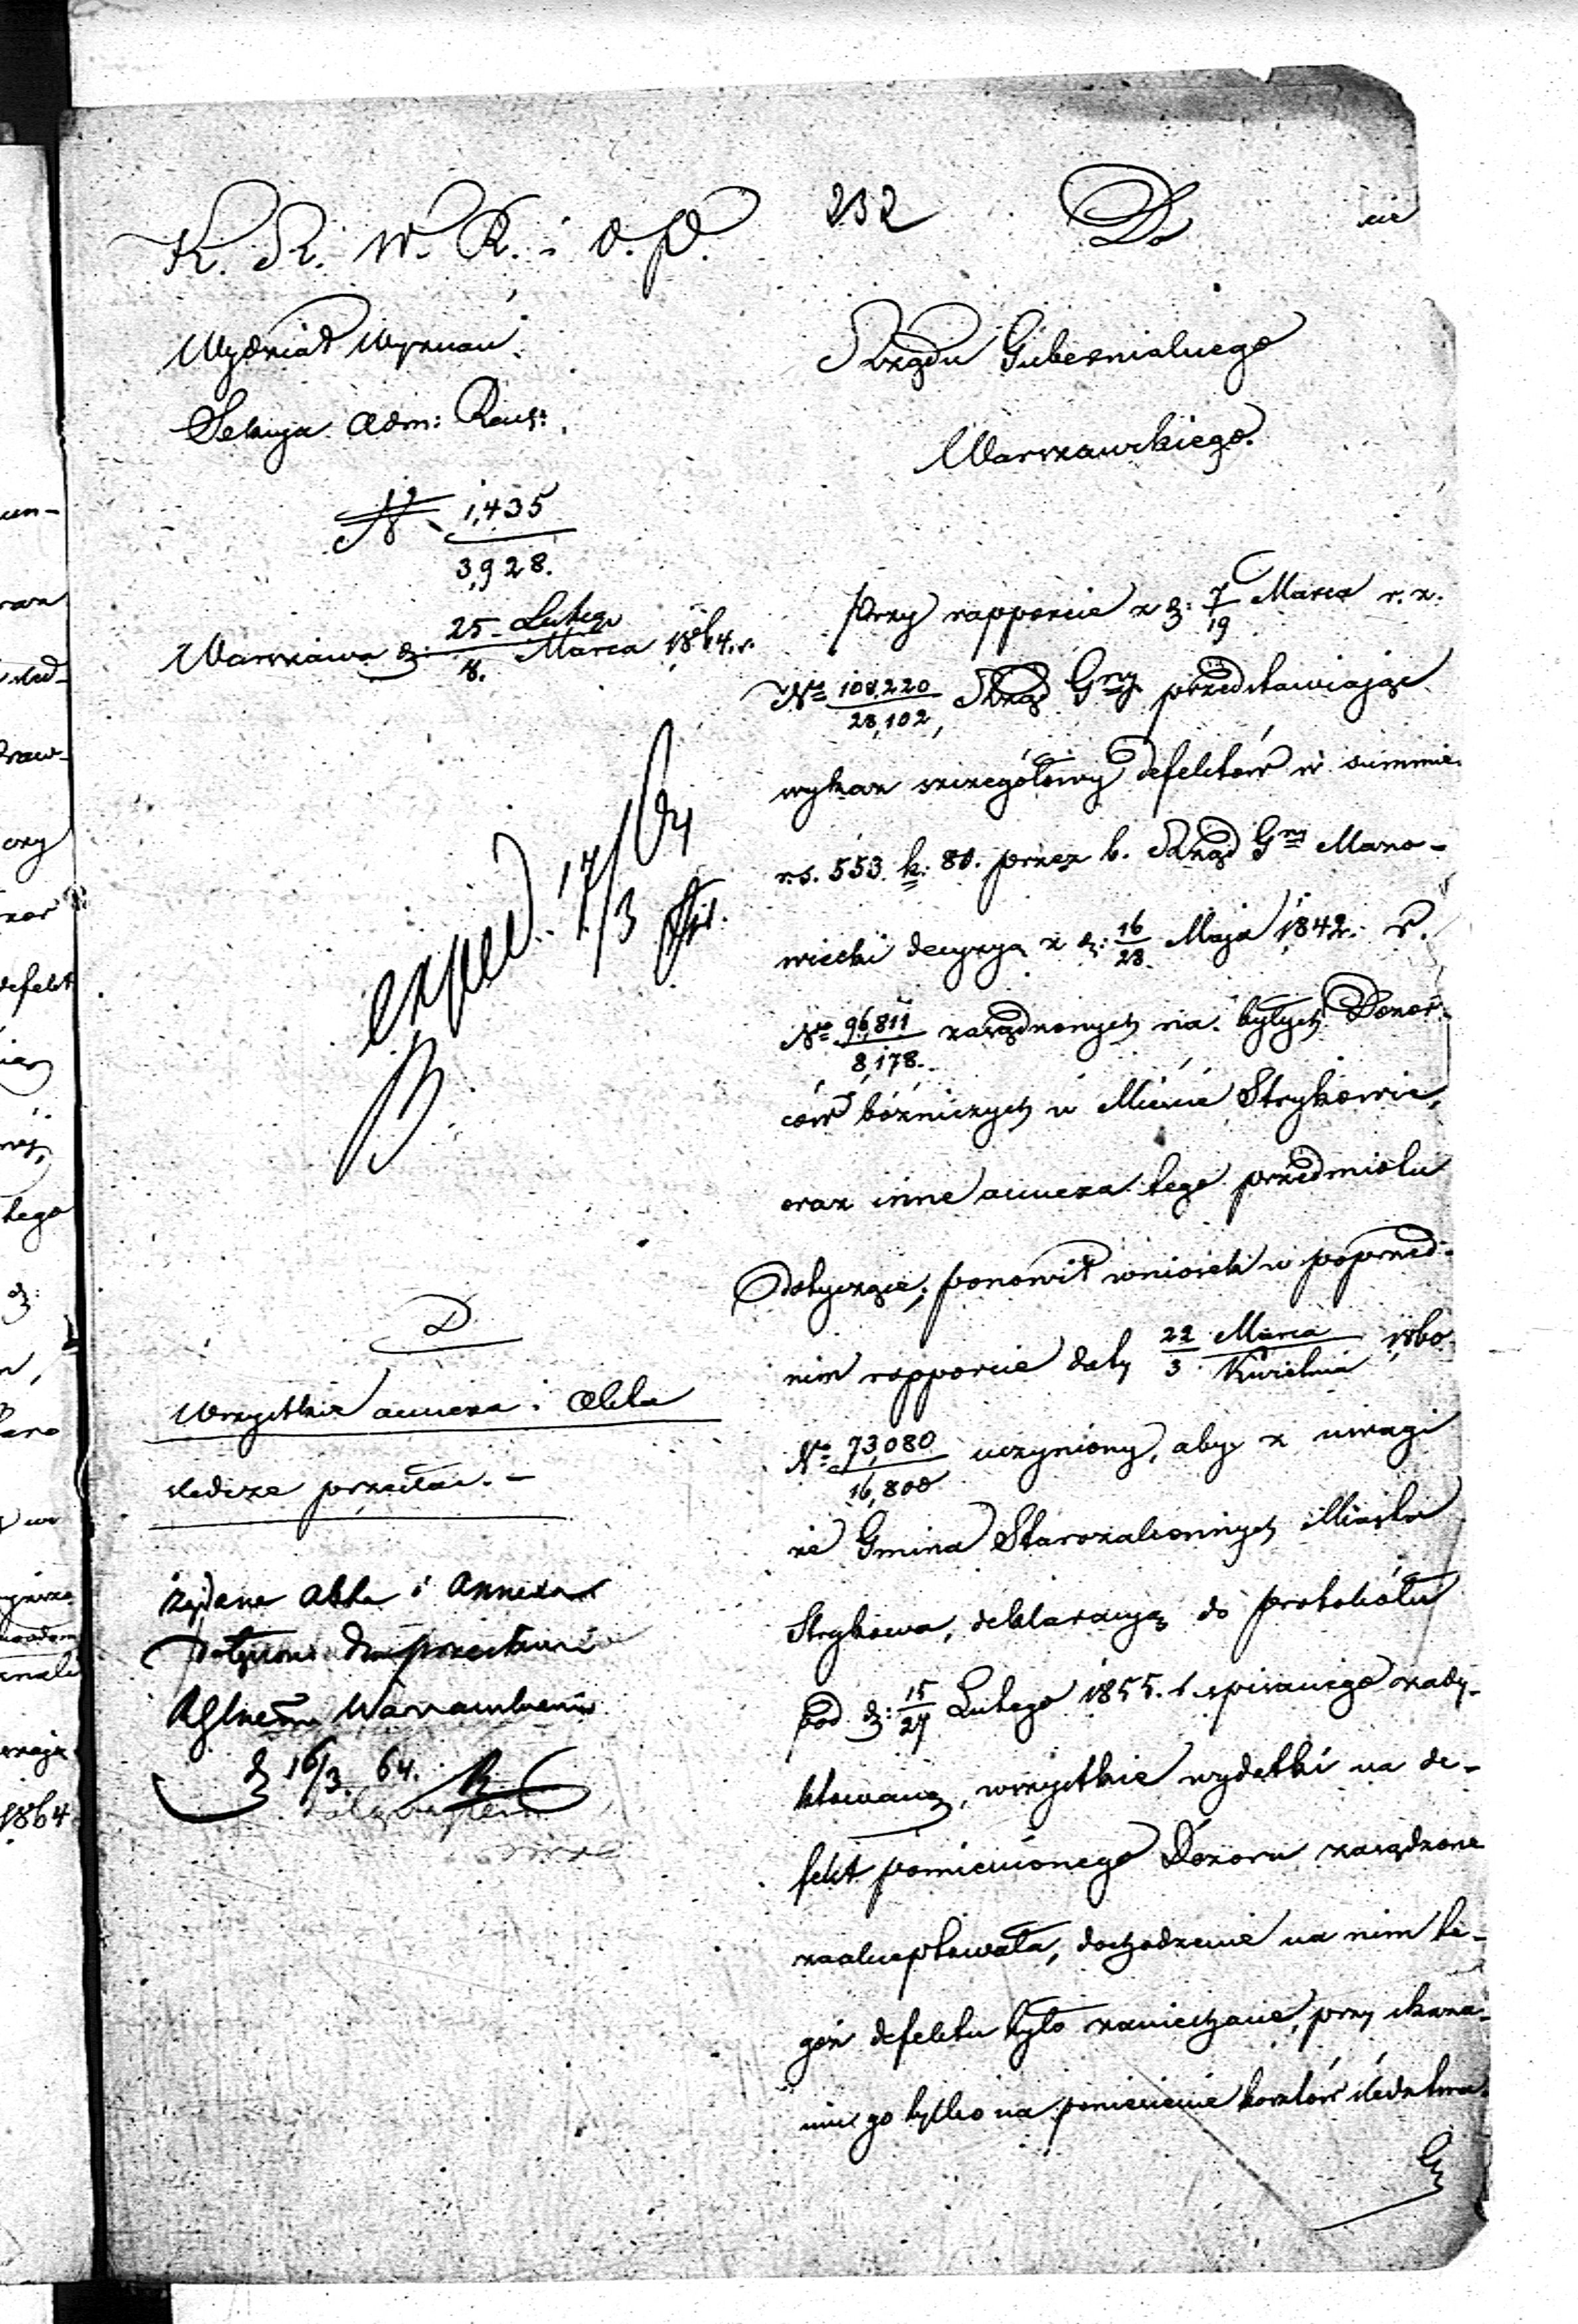 232
K. R. W. R. i O. P.
Wydział Wyznań.
Sekcya Adm: Rach:
N 1,435
3,928.
Warszawa d: 25 Lutego
8. Marca 1864 r.
exped. 17/3 64
Do
Rządu Gubernialnego
Warszawskiego.
Przy rapporcie z d: 7/19 Marca r. z.
No 108,220/28,102, Rząd Gny przedstawiając
wykaz szczegółowy defektów w summie
rs. 553. k: 80. przez b. Rząd Gny Mazo-
wiecki decyzyą z d: 16/28 Maja 1842. r.
No 96,811/8,178. zarządzonych na byłych Dozor-
ców bóżniczych w Mieście Strykowie,
oraz inne annexa tego przedmiotu
dotyczące, ponowił wniosek w poprzed-
nim rapporcie daty 22 Marca/3 Kwietnia 1860
No 73,080/16,800 uczyniony, aby z uwagi
że Gmina Starozakonnych Miasta
Strykowa, deklaracyą do protokółu
pod d: 15/27 Lutego 1855. r. spisanego zady-
ktowaną, wszystkie wydatki na de-
fekt pomienionego Dozoru zarządzone
zaakceptowała, dochodzenie na nim te-
goż defektu było zaniechane, przy skaza-
niu go tylko na poniesienie kosztów śledztwa.
D.
Wszystkie annexa i Akta
śledcze przesłać. -
żądane Akta i Annexa
d 16/3 64.